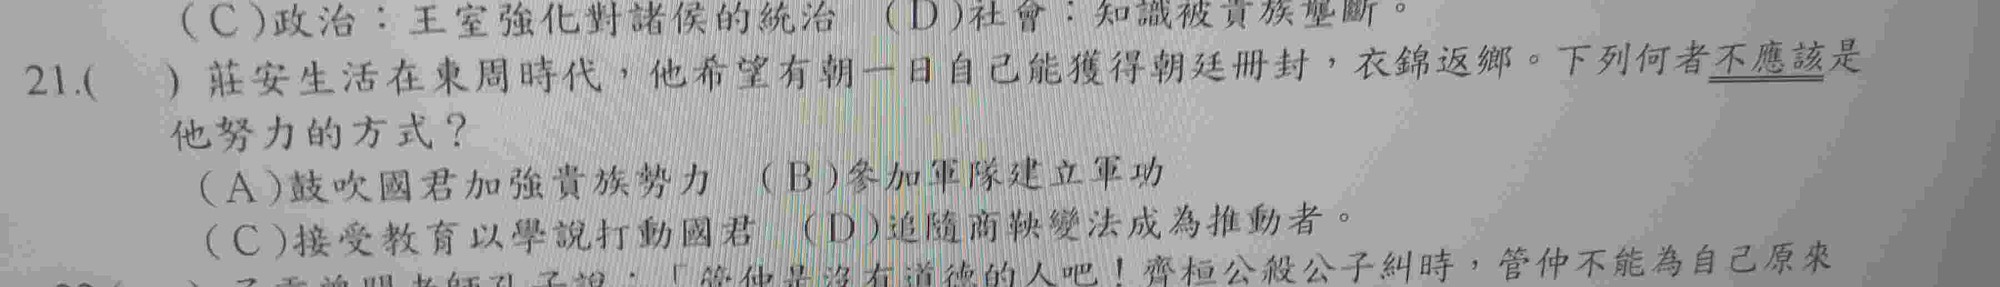 (C)政治：王室強化對諸侯的統治 (D)社會：知識被貴族壟斷。
21.( ) 莊安生活在東周時代，他希望有朝一日自己能獲得朝廷冊封，衣錦返鄉。下列何者不應該是
他努力的方式？
(A)鼓吹國君加強貴族勢力 (B)參加軍隊建立軍功
(C)接受教育以學說打動國君 (D)追隨商鞅變法成為推動者。
孔子說：「管仲是沒有道德的人吧！齊桓公殺公子糾時，管仲不能為自己原來